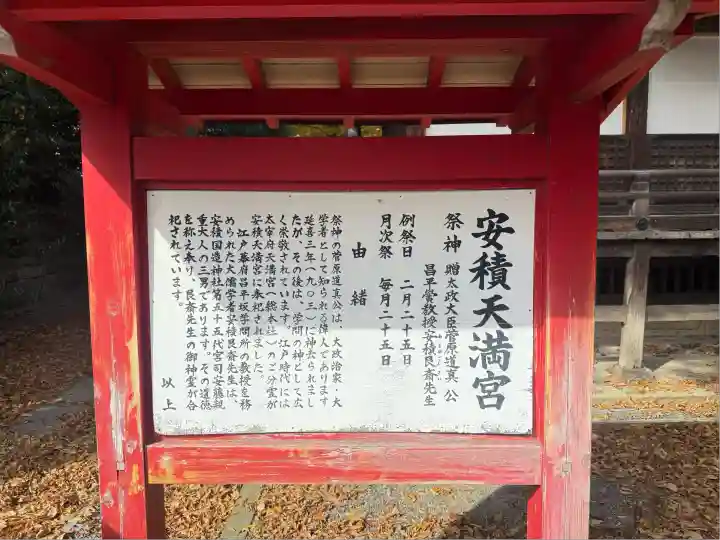 安積天満宮
祭神 贈太政大臣菅原道真 公
昌平黌教授安積艮斎先生
例祭日 二月二十五日
月次祭 毎月二十五日
由緒
祭神の菅原道真公は、大政治家、大
学者として知られる偉人であります
延喜三年(九〇三)に神去られまし
たが、その後は、学問の神として広
く崇敬されています。江戸時代には
太宰府天満宮(総本社)のご分霊が
安積天満宮に奉祀されました。
江戸幕府昌平坂学問所の教授を務
められた大儒学者安積艮斎先生は、
安積国造神社第五十五代宮司安藤親
重大人の三男であります。その道徳
を称え奉り、艮斎先生の御神霊が合
祀されています。
以上